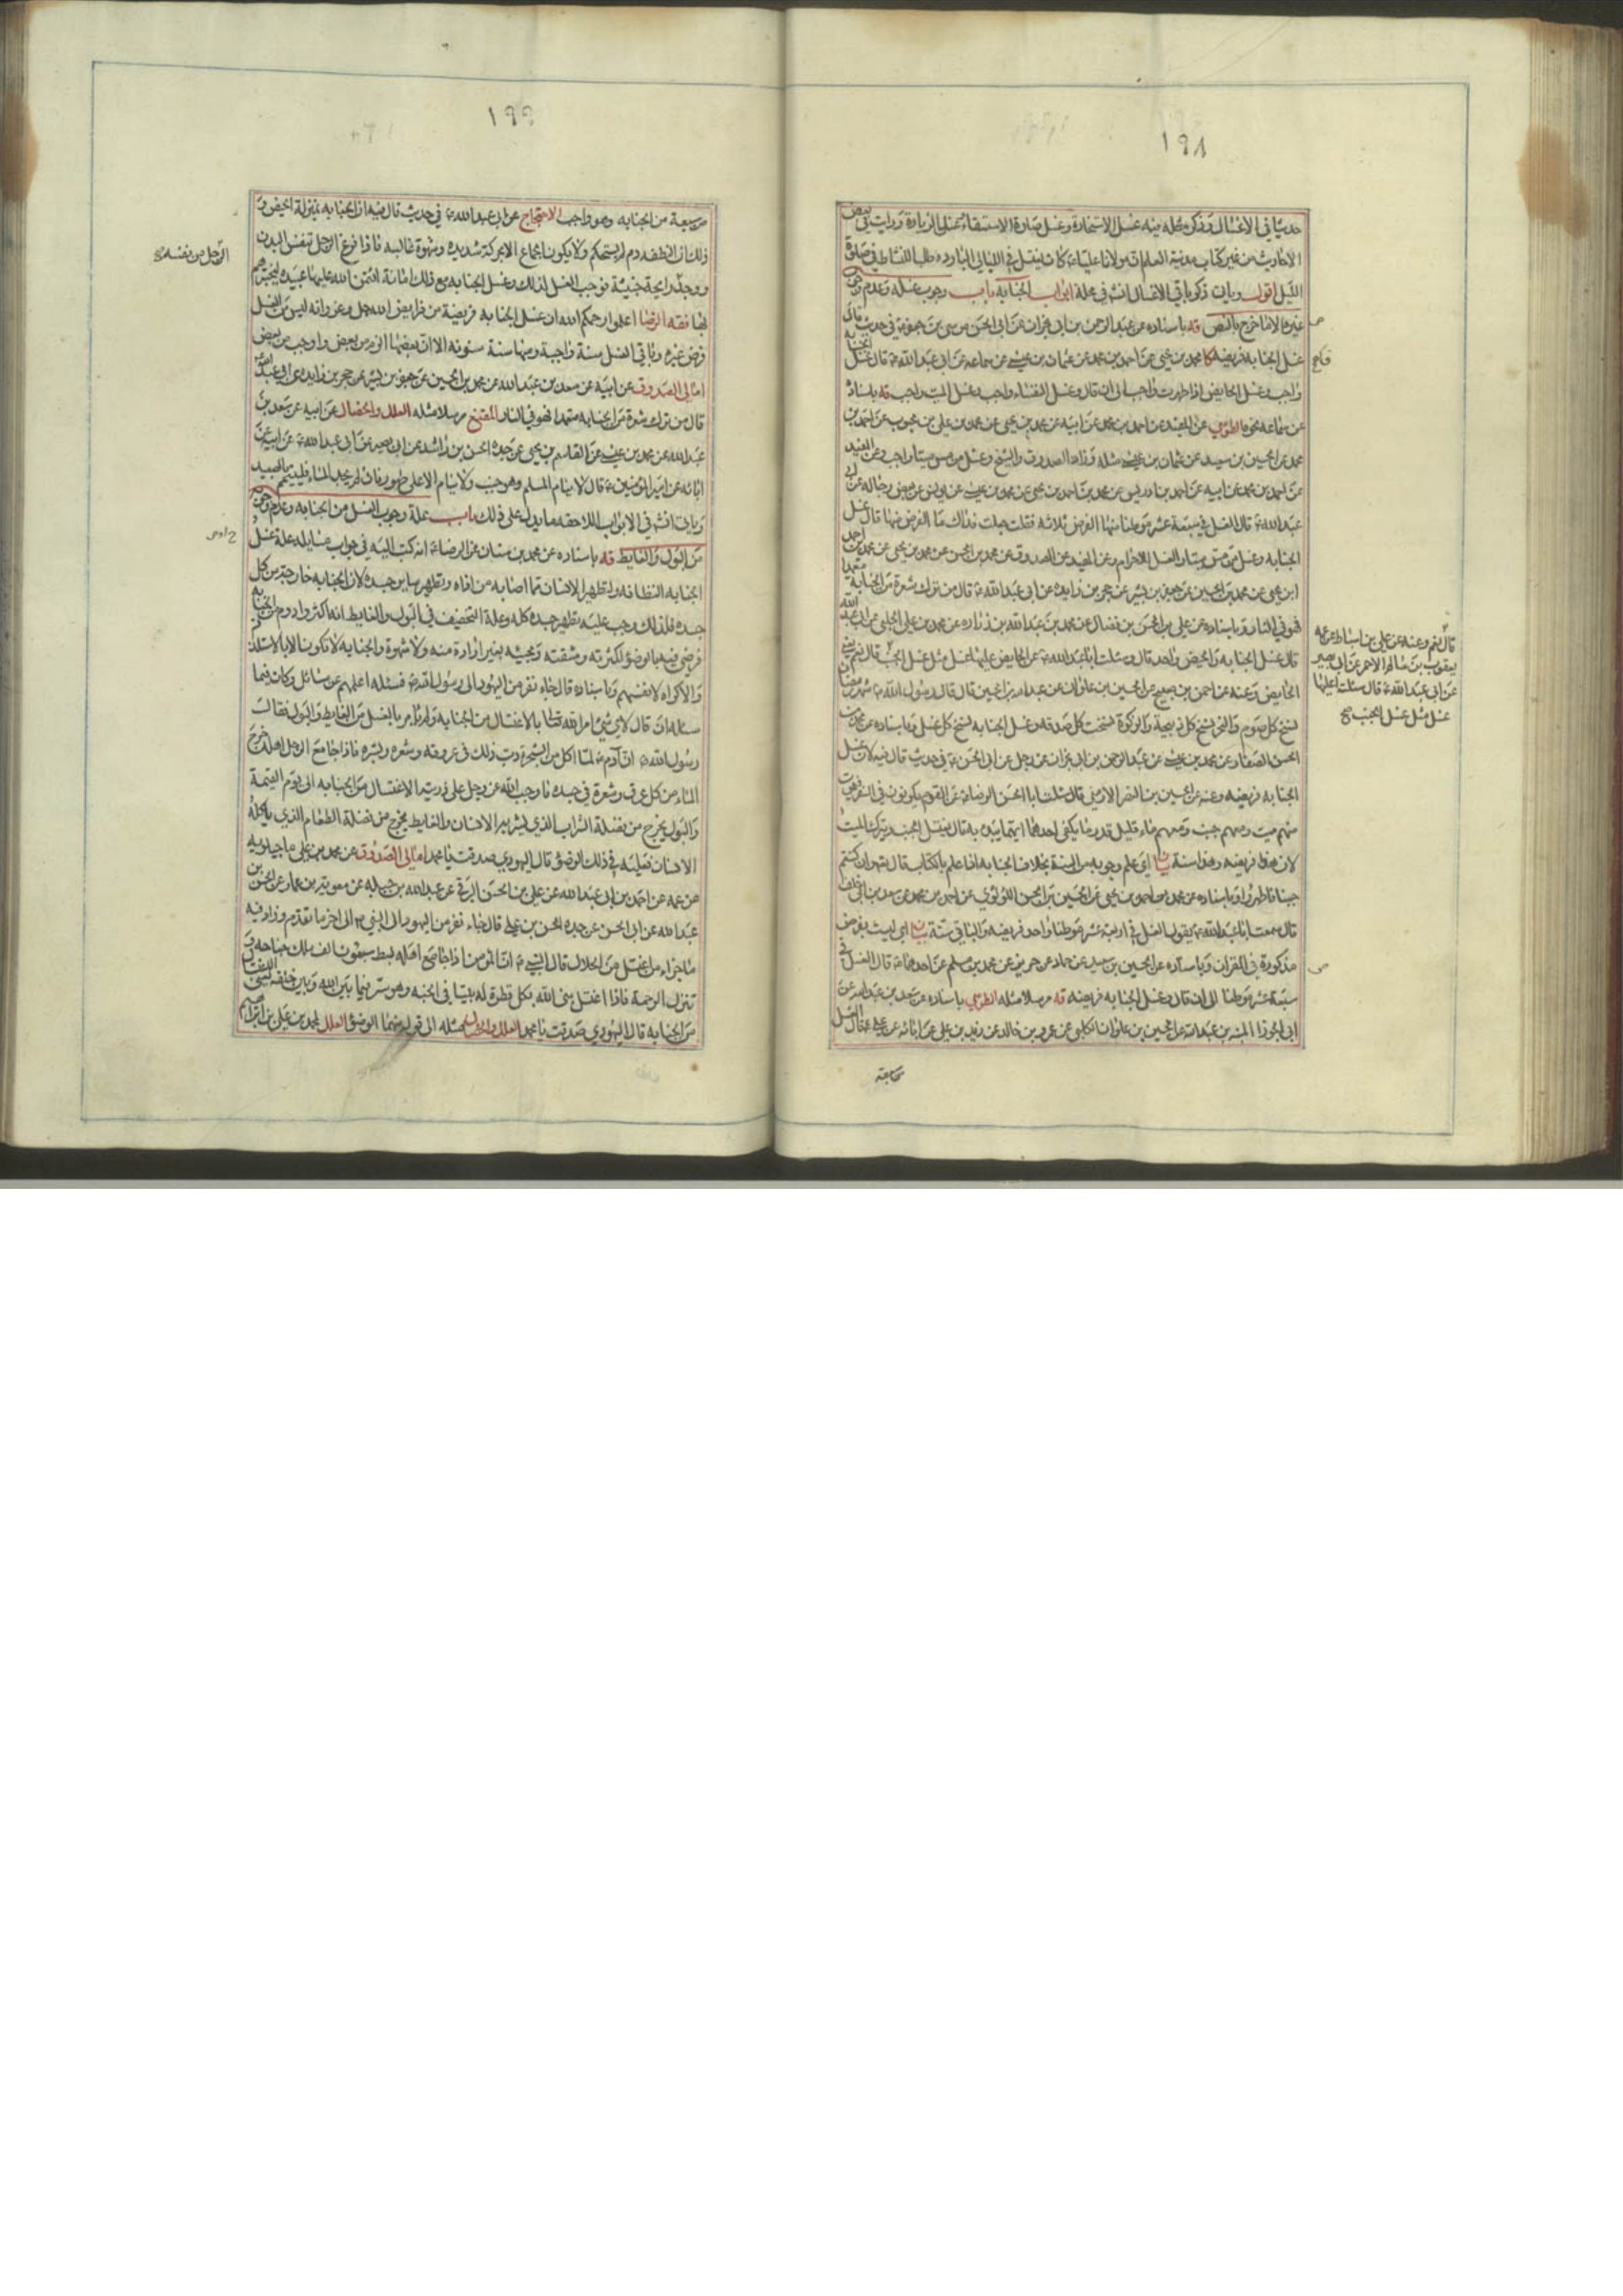 ١٩٨
حديثا في الاغسال وذكر مثله فيه غسل الاستخارة وغسل صلوة الاستسقاء وغسل الزيارة ورايت في بعض
الاحاديث من غير كتاب مدينة العلم ان مولانا عليا ع كان يغتسل في الليالي الباردة طلبا للنشاط في صلوة
الليل اقول وياتي ذكر باقي الاغسال انش في محلة ابواب الجنابه باب وجوب غسله وعدم وجوب
غيرها الا ما خرج بالنص قه باسناده عن عبد الرحمن بن ابي نجران عن ابي الحسن موسى بن جعفر ع في حديث قال
غسل الجنابه فريضه كا محمد بن يحيى عن احمد بن محمد عن عثمان بن عيسى عن سماعه عن ابي عبد الله ع قال غسل الجنابه
واجب وغسل الحايض اذا طهرت واجب الى ان قال وغسل النفساء واجب وغسل الميت واجب قه باسناده
عن سماعه نحوه الطوسي عن المفيد عن احمد بن محمد عن ابيه عن محمد بن يحيى عن محمد بن علي بن محبوب عن احمد بن
محمد عن الحسين بن سعيد عن عثمان بن عيسى مثله وزاد الصدوق والشيخ وغسل من مس ميتا واجب وعن المفيد
عن احمد بن محمد عن ابيه عن احمد بن ادريس عن محمد بن احمد بن يحيى عن محمد بن عيسى عن يونس عن بعض رجاله عن ابي
عبد الله ع قال الغسل في سبعة عشر موطنا منها الفرض ثلاثه فقلت جعلت فداك ما الفرض منها قال غسل
الجنابه وغسل من مس ميتا والغسل للاحرام وعن المفيد عن الصدوق عن محمد بن الحسن عن محمد بن يحيى عن محمد بن احمد
ابن يحيى عن محمد بن الحسين عن جعفر بن بشير عن حجر بن زايده عن ابي عبد الله ع قال من ترك شعرة من الجنابة متعمدا
فهو في النار وباسناده عن علي بن الحسن بن فضال عن محمد بن عبد الله بن زراره عن محمد بن علي الحلبي عن ابي عبد الله
قال غسل الجنابه والحيض واحد قال وسئلت ابا عبد الله ع عن الحايض عليها غسل مثل غسل الجنب قال نعم يعني
الحايض وعنه عن احمد بن صبيح عن الحسين بن علوان عن عبد الله بن الحسين قال قال رسول الله ص شهر رمضان
نسخ كل صوم والنحر نسخ كل ذبيحة والزكوة نسخت كل صدقه وغسل الجنابه نسخ كل غسل وباسناده عن محمد بن
الحسن الصفار عن محمد بن عيسى عن عبد الرحمن بن ابي نجران عن رجل عن ابي الحسن ع في حديث قال فيه لان غسل
الجنابه فريضه وعنه عن الحسين بن النضر الارمني قال سئلت ابا الحسن الرضا ع عن القوم يكونون في السفر فيموت
منهم ميت ومعهم جنب ومعهم ماء قليل قدر ما يكفي احدهما ايهما يبدء به قال يغتسل الجنب ويترك الميت
لان هذا فريضه وهذا سنة بيان اي علم وجوبه من السنة بخلاف الجنابه اذا علم بالكتاب قال تع وان كنتم
جنبا فاطهروا وباسناده عن محمد بن احمد بن يحيى عن الحسين بن الحسن اللؤلؤي عن احمد بن محمد عن سعد بن ابي خلف
قال سمعت ابا عبد الله ع يقول الغسل في اربعة عشر موطنا واحد فريضه والباقي سنة بيان اي ليست بفرض
مذكورة في القران وباسناده عن الحسين بن سعيد عن حماد عن حريز عن محمد بن مسلم عن احدهما ع قال الغسل في
سبعة عشر موطنا الى ان قال وغسل الجنابه فريضه قه مرسلا مثله الطوسي باسناده عن سعد بن عبد الله عن
ابي الجوزاء المنبه بن عبد الله عن الحسين بن علوان الكلبي عن عمرو بن خالد عن زيد بن علي عن ابائه عن علي ع قال الغسل
قال نعم وعنه عن علي بن اسباط عن عمه
يعقوب بن سالم الاحمر عن ابي بصير
عن ابي عبد الله ع قال سئلته اعليها
غسل مثل غسل الجنب صح
١٩٩
من سبعة من الجنابه وهو واجب الاحتجاج عن ابي عبد الله ع في حديث قال فيه ان الجنابه بمنزلة الحيض و
ذلك ان النطفه دم لم يستحكم ولا يكون الجماع الا بحركة شديده وشهوة غالبه فاذا فرغ الرجل تنفس البدن
ووجد رايحة خبيثة فوجب الغسل لذلك وغسل الجنابه مع ذلك امانة ائتمن الله عليها عبيده ليختبرهم
بها فقه الرضا اعلموا رحمكم الله ان غسل الجنابه فريضة من فرايض الله جل وعز وانه ليس من الغسل
فرض غيره وباقي الغسل سنة واجبة ومنها سنة مسنونه الا ان بعضها الزم من بعض واوجب من بعض
امالي الصدوق عن ابيه عن سعد بن عبد الله عن محمد بن الحسين عن جعفر بن بشير عن حجر بن زايده عن ابي عبد الله
قال من ترك شعرة من الجنابه متعمدا فهو في النار المقنع مرسلا مثله العلل والخصال عن ابيه عن سعد بن
عبد الله عن محمد بن عيسى عن القاسم بن يحيى عن جده الحسن بن راشد عن ابي بصير عن ابي عبد الله ع عن ابيه عن
ابائه عن امير المؤمنين ع قال لا ينام المسلم وهو جنب ولا ينام الا على طهور فان لم يجد الماء فليتيمم بالصعيد
وياتي انش في الابواب اللاحقه ما يدل على ذلك باب علة وجوب الغسل من الجنابه وعدم وجوبه
من البول والغايط قه باسناده عن محمد بن سنان عن الرضا ع انه كتب اليه في جواب مسايله علة غسل
الجنابه النظافه ولتطهير الانسان مما اصابه من اذاه وتطهير ساير جسده لان الجنابه خارجة من كل
جسده فلذلك وجب عليه تطهير جسده كله وعلة التخفيف في البول والغايط انه اكثر وادوم من الجنابه
فرضي فيه بالوضوء لكثرته ومشقته ومجيئه بغير ارادة منه ولا شهوة والجنابه لا تكون الا بالاستلذاذ
والاكراه لانفسهم وباسناده قال جاء نفر من اليهود الى رسول الله ص فسئله اعلمهم عن مسائل وكان فيما
سئله ان قال لاي شئ امر الله تعالى بالاغتسال من الجنابه ولم يامر بالغسل من الغايط والبول فقال
رسول الله ص ان آدم ع لما اكل من الشجرة دب ذلك في عروقه وشعره وبشره فاذا جامع الرجل اهله خرج
الماء من كل عرق وشعرة في جسده فاوجب الله عز وجل على ذريته الاغتسال من الجنابه الى يوم القيمة
والبول يخرج من فضلة الشراب الذي يشربه الانسان والغايط يخرج من فضلة الطعام الذي ياكله
الانسان فعليه في ذلك الوضوء قال اليهودي صدقت يا محمد امالي الصدوق عن محمد بن علي ماجيلويه
عن عمه عن احمد بن ابي عبد الله عن علي بن الحسن البرقي عن عبد الله بن جبله عن معوية بن عمار عن الحسن بن
عبد الله عن ابي الحسن عن جده الحسن بن علي قال جاء نفر من اليهود الى النبي ص الى اخر ما تقدم وزاد فيه
ما جزاء من اغتسل من الحلال قال النبي ص ان المؤمن اذا جامع اهله بسط سبعون الف ملك جناحه و
تنزل الرحمة فاذا اغتسل بنى الله بكل قطرة له بيتا في الجنه وهو سر فيما بين الله وبين خلقه يعني الاغتسال
من الجنابه قال اليهودي صدقت يا محمد العلل مثله الى قوله منهما الوضوء العلل لمحمد بن علي بن ابراهيم
الرجل من نفسه